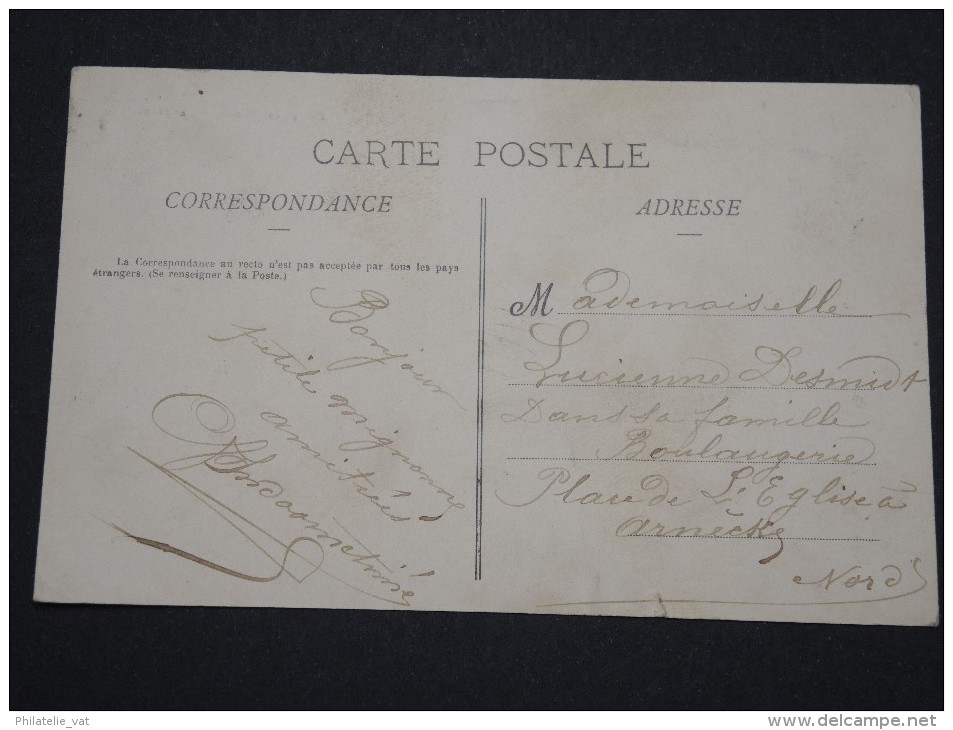 CARTE POSTALE
CORRESPONDANCE
La Correspondance au recto n'est pas acceptée par tous les pays
étrangers. (Se renseigner à la Poste.)
Bonjour
petite mignonne
amitiés
ADRESSE
Mademoiselle
Lucienne Desmidt
Dans sa famille
Boulangerie
Place de L'Eglise à
Arnècke
Nord
Philatelie_vat
www.delcampe.net